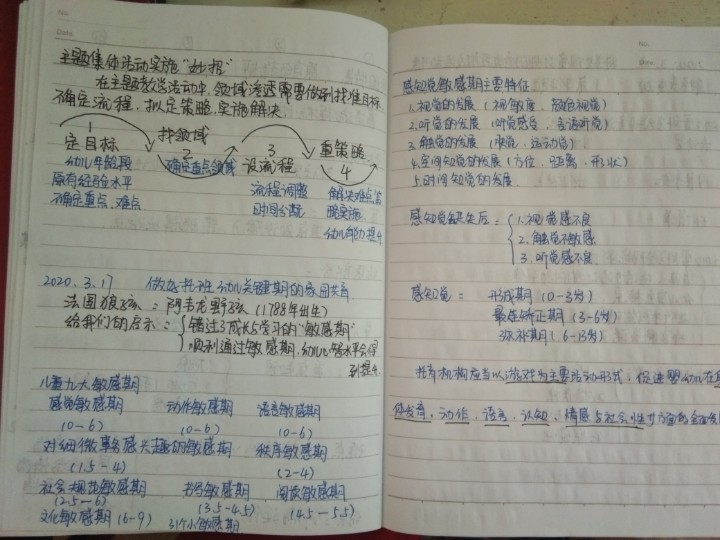 主题集体活动实施“妙招”
在主题教学活动中,领域渗透需要做到找准目标
确定流程,拟定策略,实施解决
1
定目标
幼儿年龄段
原有经验水平
确定重点、难点
找领域
2
确定重点领域
3
设流程
流程调整
时间分配
重策略
4
解决难点,策
略实施
幼儿能力提升
2020.3.17 做好托班幼儿关键期的家园共育
法国狼孩:阿韦龙野孩(1788年出生)
给我们的启示:错过了成长与学习的“敏感期”
顺利通过敏感期,幼儿心智水平会得
到提升
儿童九大敏感期
感觉敏感期 动作敏感期 语言敏感期
(0-6) (0-6) (0-6)
对细微事务感兴趣的敏感期 秩序敏感期
(1.5-4) (2-4)
社会规范敏感期 书写敏感期 阅读敏感期
(2.5-6) (3.5-4.5) (4.5-5.5)
文化敏感期(6-9) 31个小敏感期
No.
感知觉敏感期主要特征
1.视觉的发展(视敏度、颜色视觉)
2.听觉的发展(听觉感受、言语听觉)
3.触觉的发展(肤觉、运动觉)
4.空间知觉的发展(方位、距离、形状)
5.时间知觉的发展
感知觉缺失后:1.视觉感不良
2.触觉不敏感
3.听觉感不良
感知觉: 形成期(0-3岁)
最佳矫正期(3-6岁)
弥补期(6-13岁)
托育机构应当以游戏为主要活动形式,促进婴幼儿在
体发育、动作、语言、认知、情感与社会性等方面的全面发